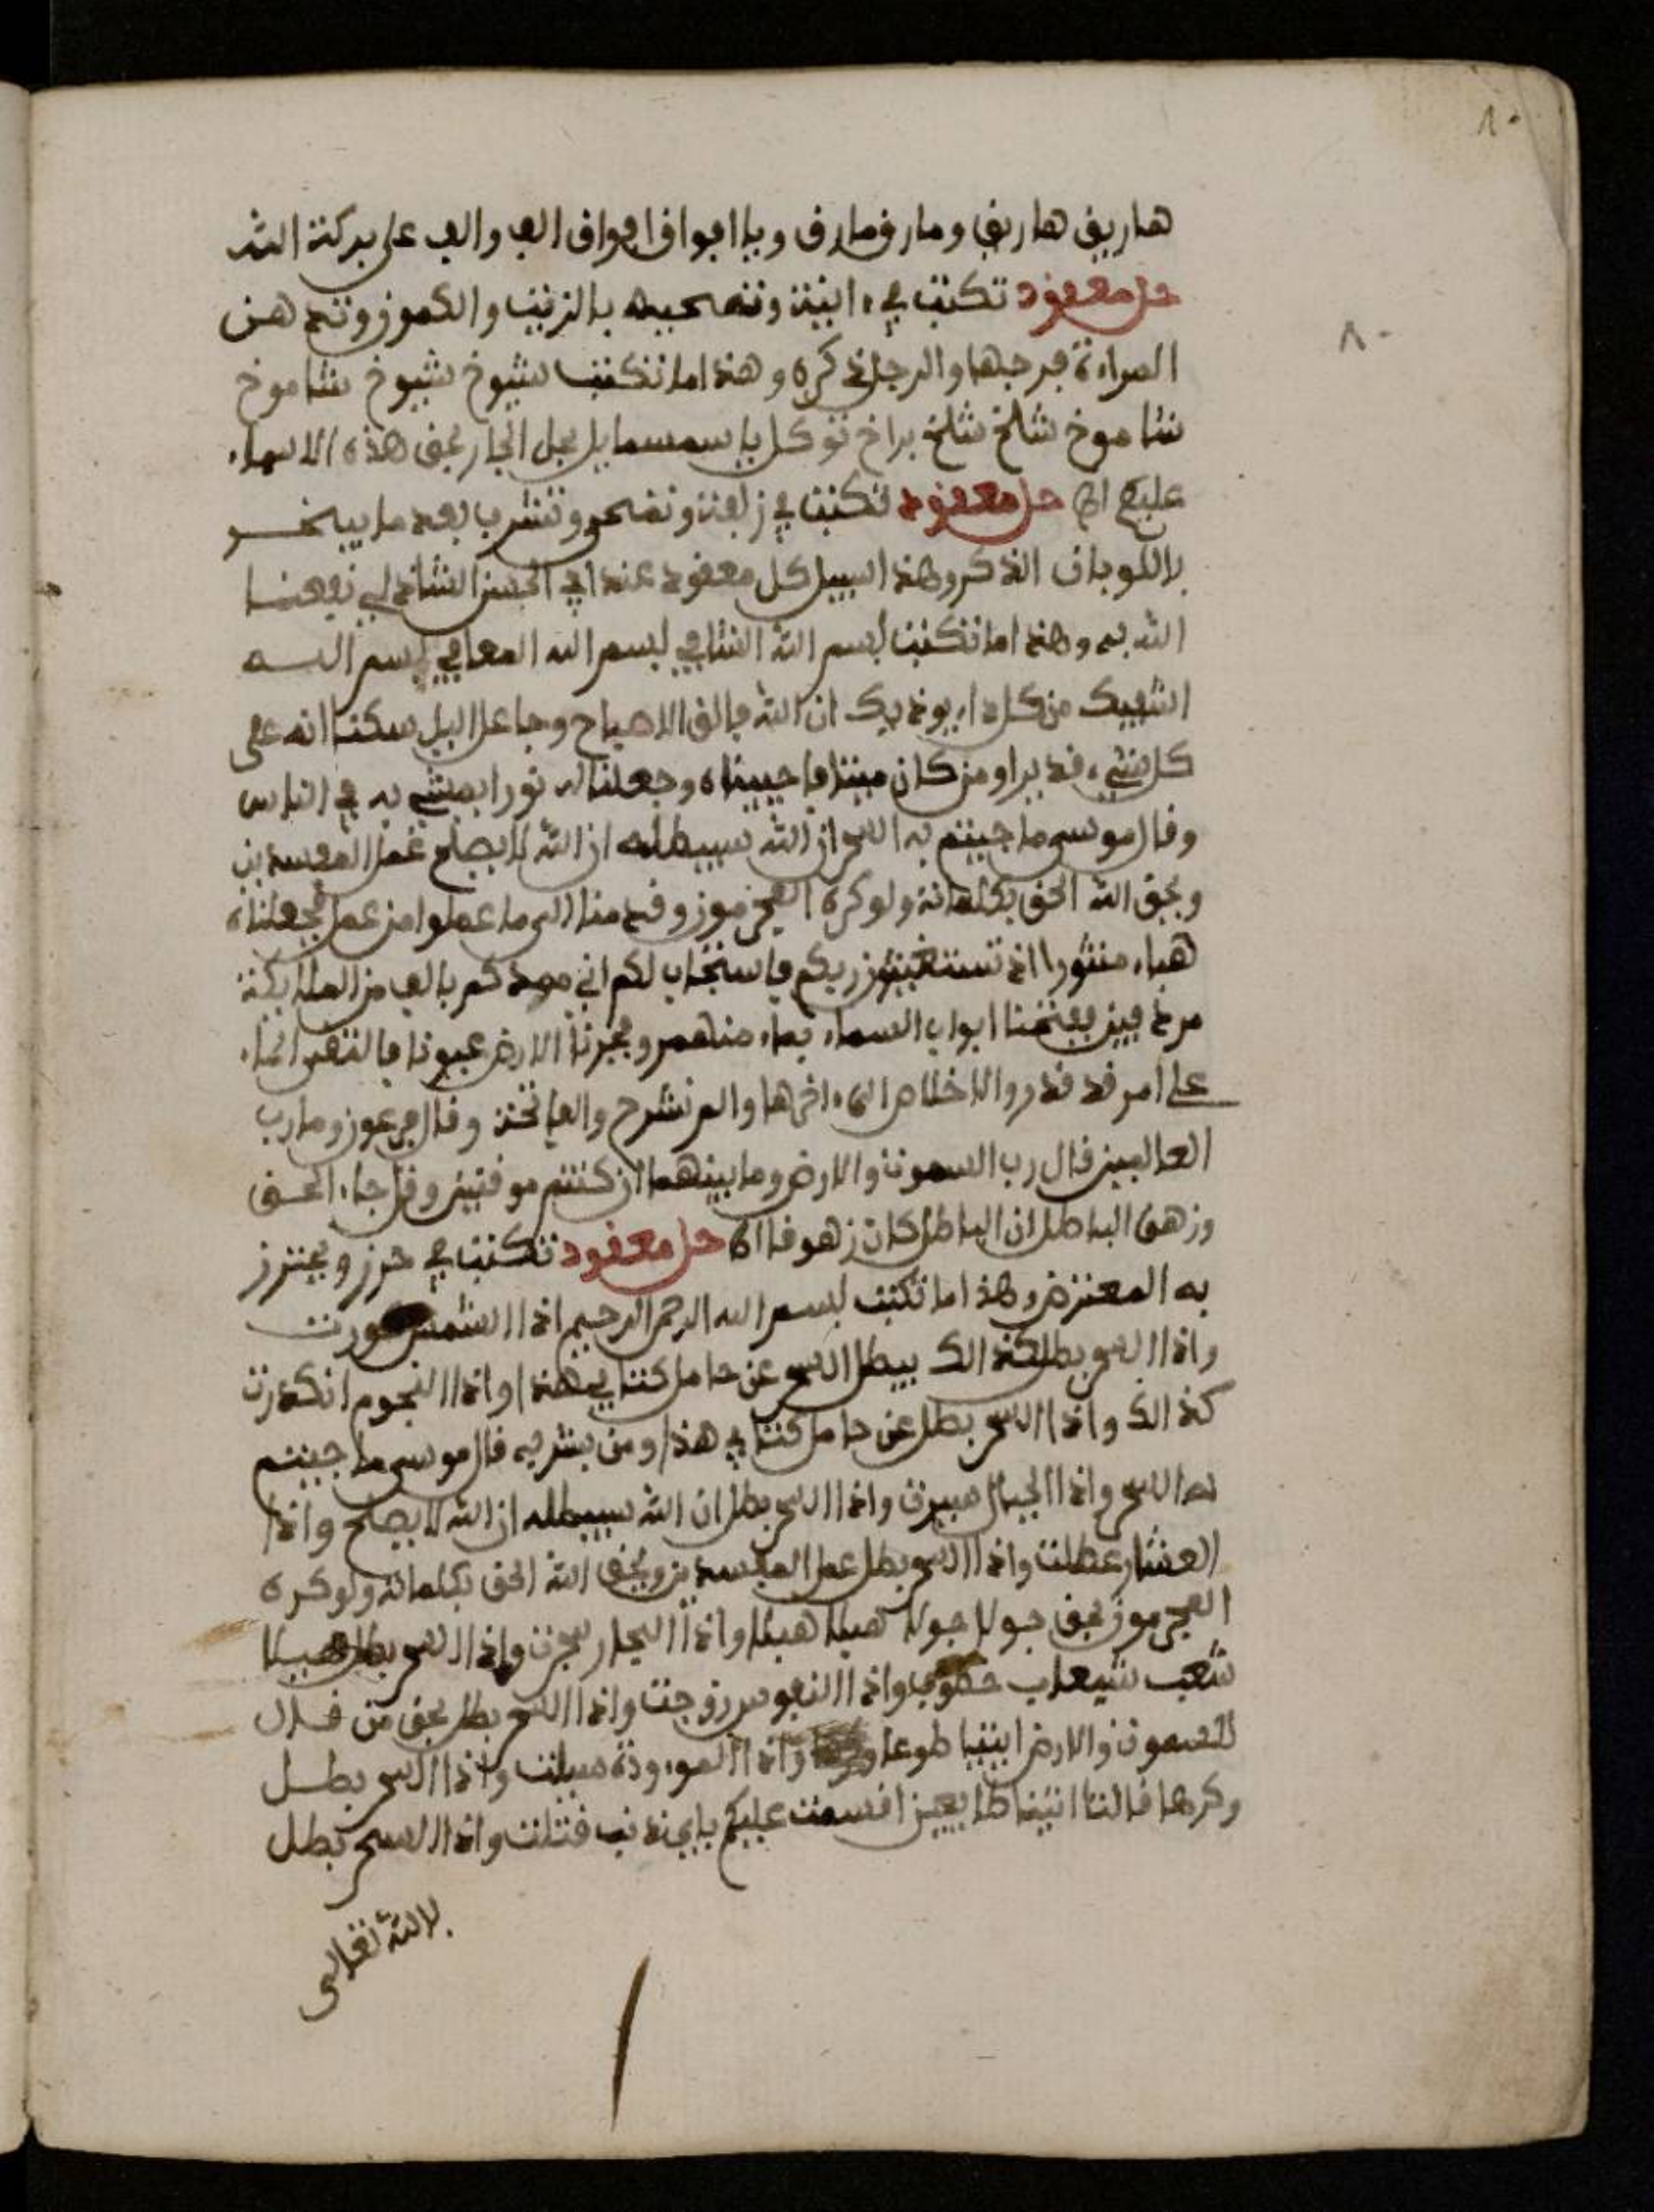 ٨٠
٨٠
هاريق هاريق ومارق مارق ويا ابواق ابواق الف والف على بركة الله
حل معقود تكتب في ءانية وتمحيه بالزيت والكمون وتدهن
المراءة فرجها والرجل ذكره وهذا ما تكتب شيوخ شيوخ شاموخ
شاموخ شلخ شلخ براخ توكل يا سمسمايل بحل الجار بحق هذه الاسماء
عليك الخ حل معقود تكتب في زلافة وتمحى وتشرب بعد ما يبخر
باللوبان الذكر وهذا السبيل كل معقود عند ابي الحسن الشاذلي نفعنا
الله به وهذا ما تكتب بسم الله الشافي بسم الله المعافي بسم الله
اشفيك من كل داء يوذيك ان الله فالق الاصباح وجاعل اليل سكنا انه على
كل شيء قدير اومن كان ميتا فاحييناه وجعلنا له نورا يمشي به في الناس
وقال موسى ما جيتم به السحر ان الله سيبطله ان الله لا يصلح عمل المفسدين
ويحق الله الحق بكلماته ولو كره المجرمون وقدمنا الى ما عملوا من عمل فجعلناه
هباء منثورا اذ تستغيثون ربكم فاستجاب لكم اني ممدكم بالف من الملايكة
مردفين ففتحنا ابواب السماء بماء منهمر وفجرنا الارض عيونا فالتقى الماء
على امر قد قدر والاخلاص الى ءاخرها والم نشرح والفاتحة وقال فرعون وما رب
العالمين قال رب السموت والارض وما بينهما ان كنتم موقنين وقل جاء الحق
وزهق الباطل ان الباطل كان زهوقا الخ حل معقود تكتب في حرز ويحترز
به المعترض وهذا ما تكتب بسم الله الرحمن الرحيم اذا الشمس كورت
واذا السحر بطل كذالك يبطل السحر عن حامل كتابي هذا واذا النجوم انكدرت
كذالك واذا السحر بطل عن حامل كتابي هذا ومن يشربه قال موسى ما جيتم
به السحر واذا الجبال سيرت واذا السحر بطل ان الله سيبطله ان الله لا يصلح واذا
العشار عطلت واذا السحر بطل عمل المفسدين ويحق الله الحق بكلماته ولو كره
المجرمون بحق جولا جولا هيلا هيلا واذا البحار سجرت واذا السحر بطل هيلا
شعب شيعاب واذا النفوس زوجت واذا السحر بطل بحق من قال
للسموت والارض ايتيا طوعا واذا الموءودة سيلت واذا السحر بطل
وكرها قالتا اتينا طايعين اقسمت عليكم باي ذنب قتلت واذا السحر بطل
بالله تعالى